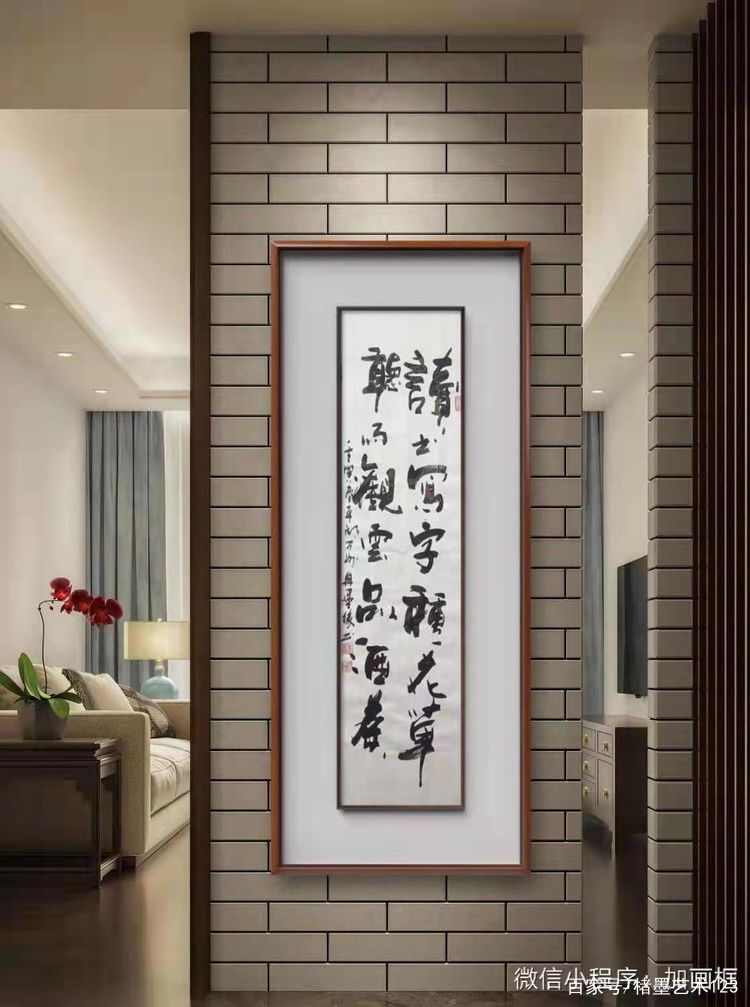 讀书寫字種花草
聽雨觀雲品酒茶
壬寅
微信小程序：加画框
百家号/楮墨艺术123